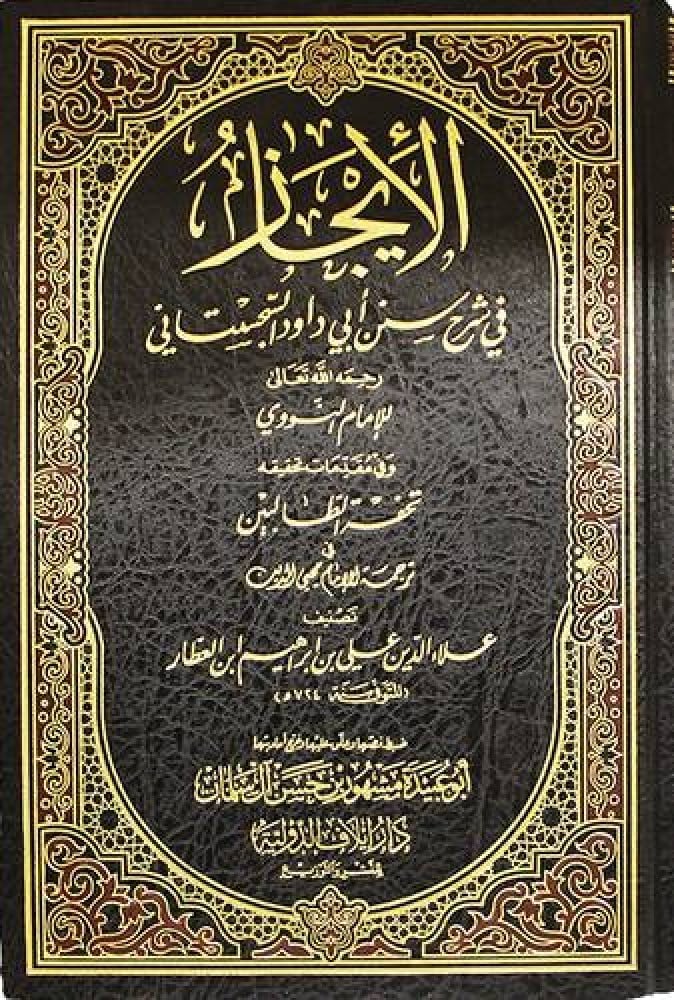 الإيجاز
في شرح سنن أبي داود السجستاني
رحمه الله تعالى
للإمام النووي
وفي مقدمات تحقيقه
تحفة الطالبين
في
ترجمة الإمام محيي الدين
تصنيف
علاء الدين علي بن إبراهيم ابن العطار
(المتوفى سنة ٧٢٤ هـ)
ضبط نصها وعلق عليها وخرج أحاديثها
أبو عبيدة مشهور بن حسن آل سلمان
دار إيلاف الدولية
للنشر والتوزيع